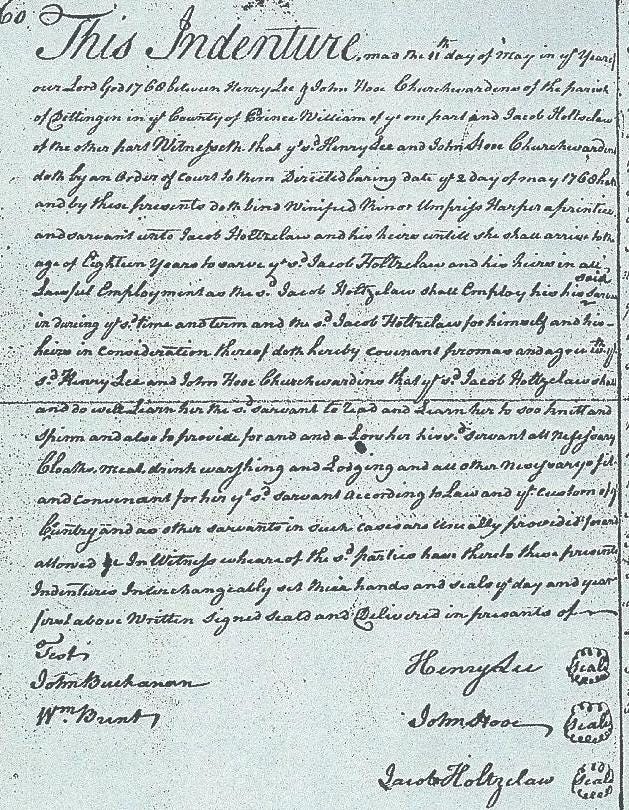 60
This Indenture, mad the 11th day of May in ye Year
our Lord God 1768 between Henry Lee & John Hooe Churchwardens of the parish
of Dettingen in ye County of Prince William of ye one part and Jacob Holtsclaw
of the other part Witnesseth that ye sd Henry Lee and John Hooe Churchwardens
doth by an Order of Court to them Directed baring date ye 2 day of may 1768 hath
and by these presents doth bind Winifred Minor Umpriss Harper aprintice
and servant unto Jacob Holtzclaw and his heirs untill she shall arrive to the
age of Eighteen Years to sarve ye sd Jacob Holtzclaw and his heirs in all
Lawful Employment as the sd Jacob Holtzclaw shall Employ his his said Servt
in during ye sd time and term and the sd Jacob Holtzclaw for himself and his
heirs in Consideration thereof doth hereby covenant promas and agre with ye
sd Henry Lee and John Hooe Churchwardins that ye sd Jacob Holtzclaw shall
and do will Learn her the sd sarvant to read and Learn her to soo knitt and
spinn and also to provide for and and a Low her his sd servant all Nesessary
Cloaths, meat, drink warshing and Lodging and all other Nesessarys fit
and Convenant for her ye sd sarvant According to Law and ye Custom of ye
Cuntry and as other sarvants in such cases are Usually provided for and
allowed In Witness wheareof the sd parties have thereto these presents
Indentures Interchangeably set their hands and seals ye day and year
first above Written Signed seald and Delivered in presants of
Test
John Buchanan
Wm Brent
Henry Lee Seal
John Hooe Seal
Jacob Holtzclaw Seal